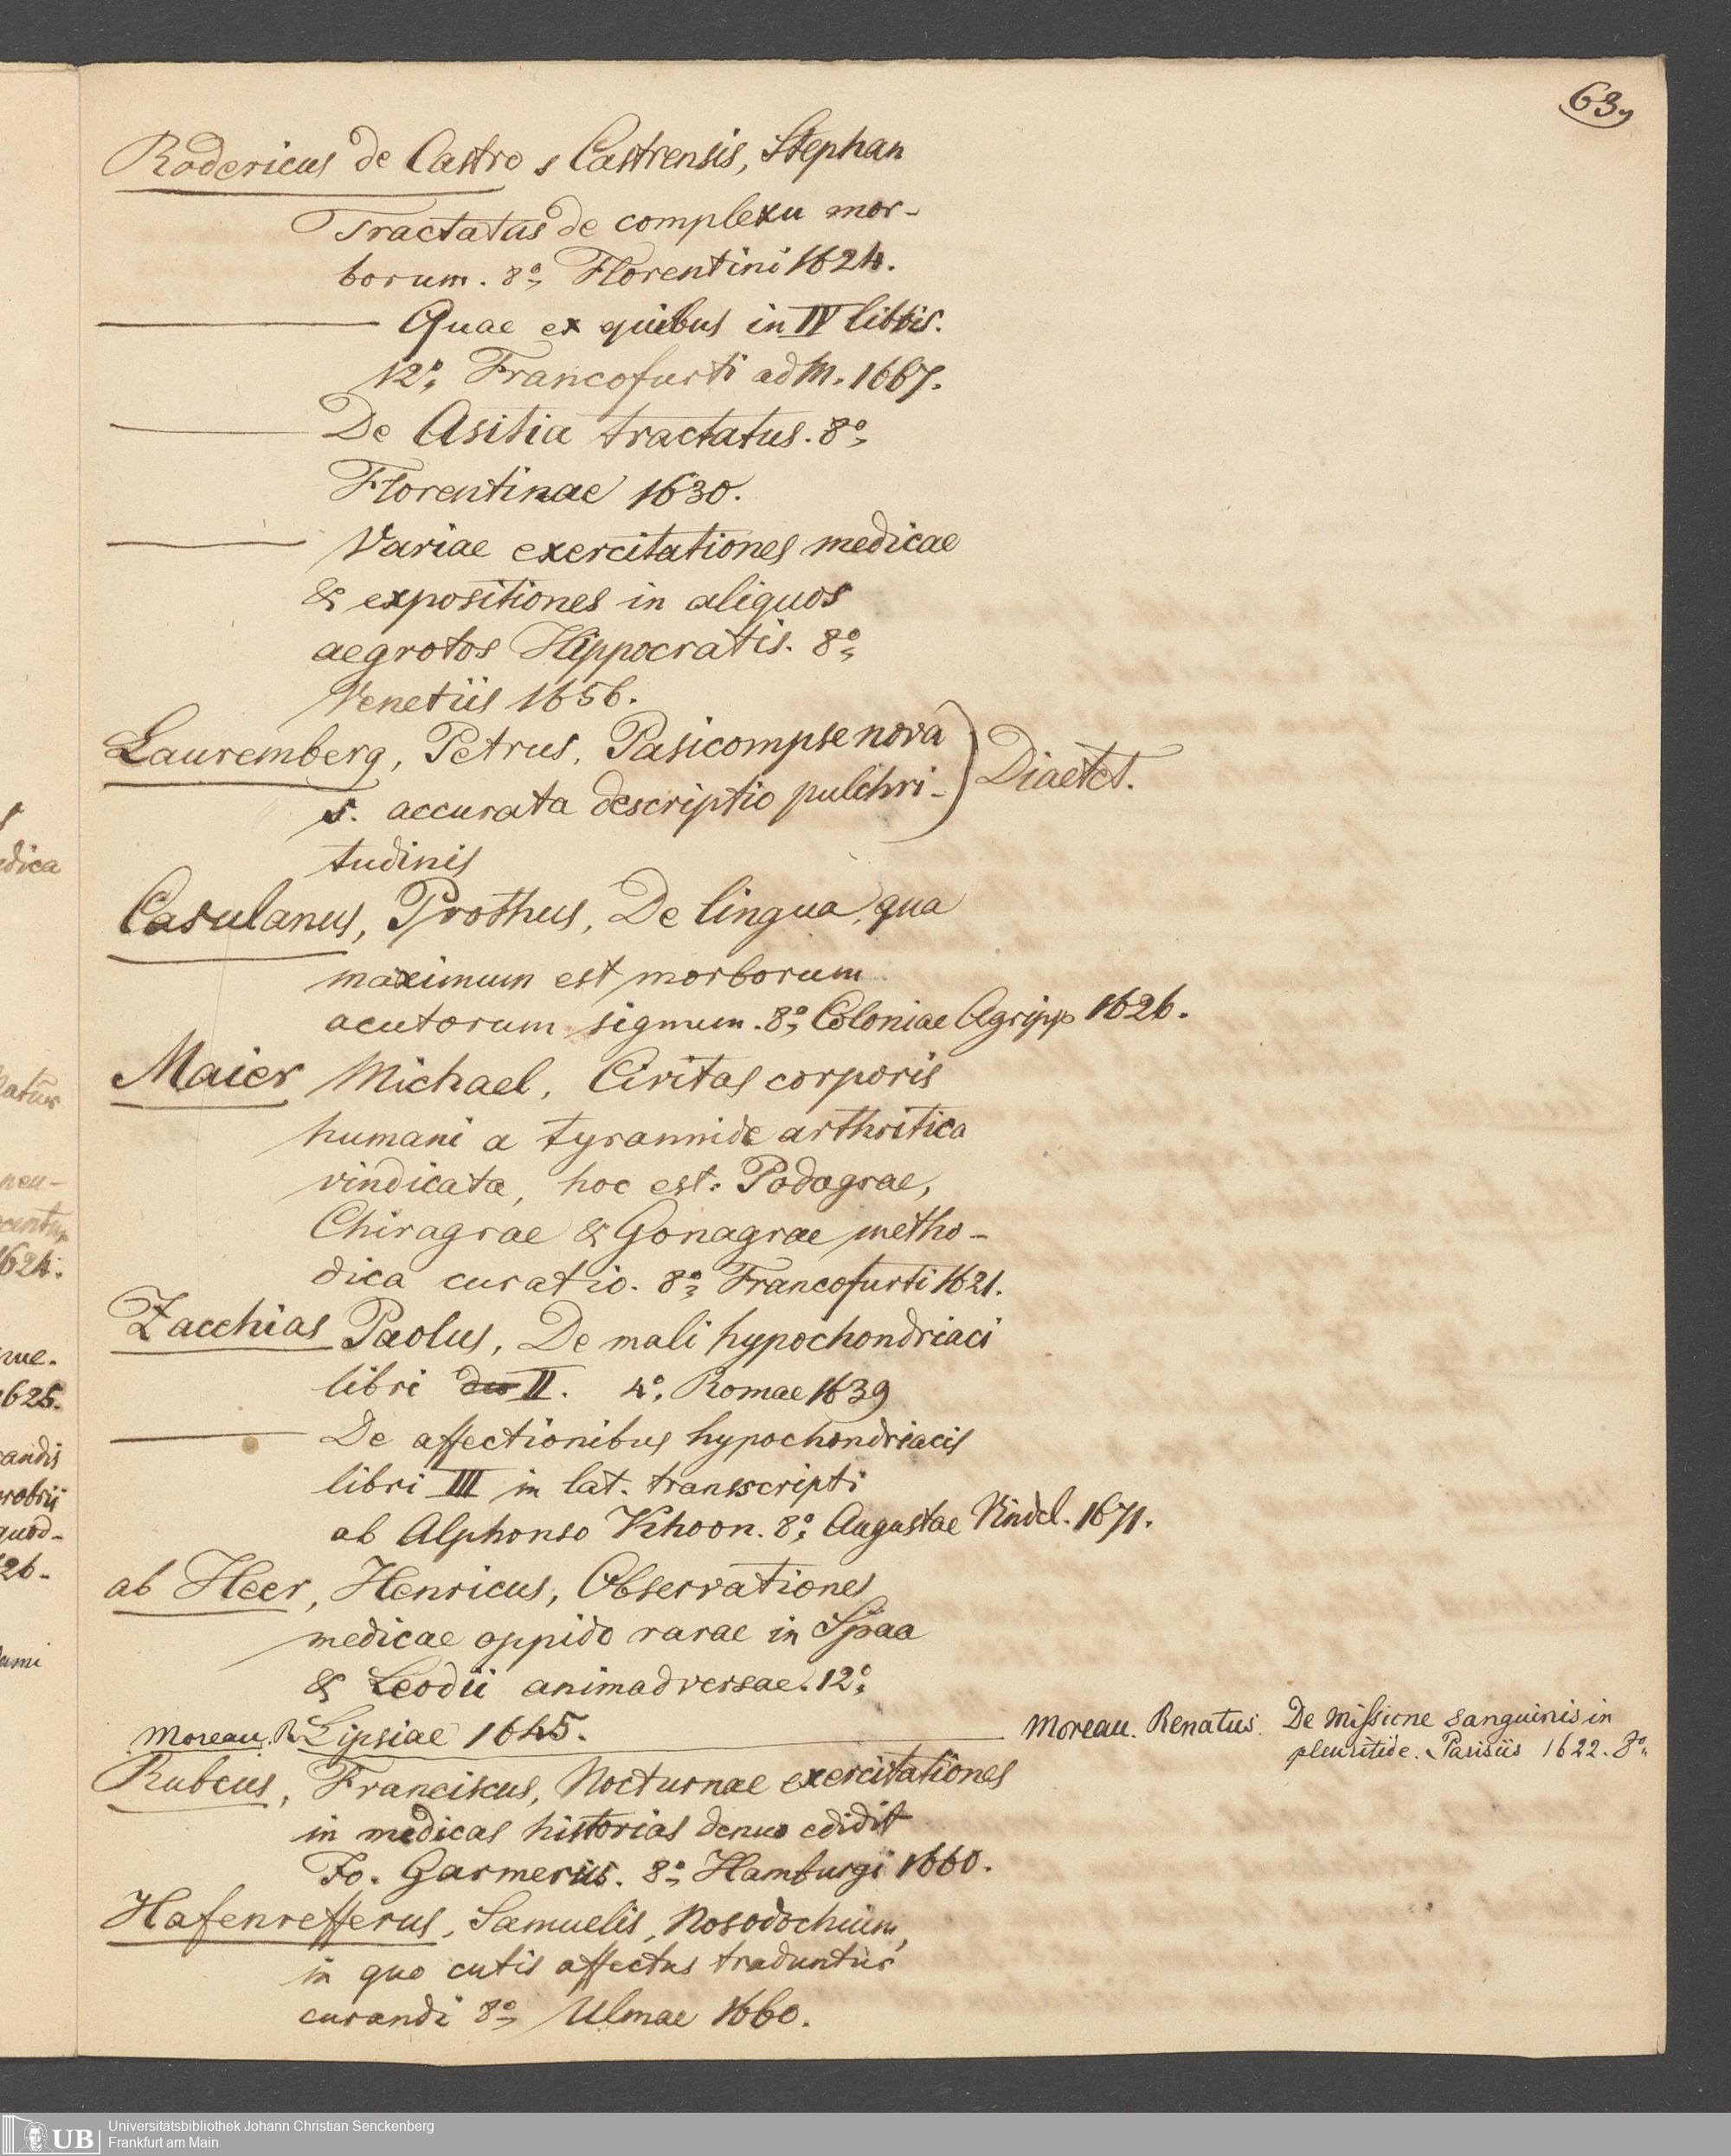 63,
Rodericus de Castro s Castrensis, Stephan
Tractatus de complexu mor-
borum. 8°, Florentini 1624.
Quae ex quibus in IV libris.
12°, Francofurti ad M. 1667.
De Asitia tractatus. 8°,
Florentinae 1630.
Variae exercitationes medicae
& expositiones in aliquos
aegrotos Hippocratis. 8°,
Venetiis 1656.
Lauremberg, Petrus, Pasicompse nova
s. accurata descriptio pulchri-
tudinis
Diaetet.
Casulanus, Prothus, De lingua, qua
maximum est morborum
acutorum signum. 8°, Coloniae Agripp 1626.
Maier Michael, Civitas corporis
humani a tyrannide arthritica
vindicata, hoc est: Podagrae,
Chiragrae & Gonagrae metho-
dica curatio. 8°, Francofurti 1621.
Zacchias Paolus, De mali hypochondriaci
libri duo II. 4°, Romae 1639
De affectionibus hypochondriacis
libri III in lat. transcripti
ab Alphonso Khoon. 8°, Augustae Vindel. 1671.
ab Heer, Henricus, Observationes
medicae oppido rarae in Spaa
& Leodii animadversae. 12°,
Lipsiae 1645.
Moreau. R
Moreau. Renatus. De missione sanguinis in
pleuritide. Parisiis 1622. 8°,
Rubeus, Franciscus, Nocturnae exercitationes
in medicas historias denuo edidit
Jo. Garmerus. 8°, Hamburgi 1660.
Hafenrefferus, Samuelis, Nosodochium,
in quo cutis affectus traduntur
curandi 8°, Ulmae 1660.
dica
1624.
1625.
andis
quod-
26.
UB
Universitätsbibliothek Johann Christian Senckenberg
Frankfurt am Main